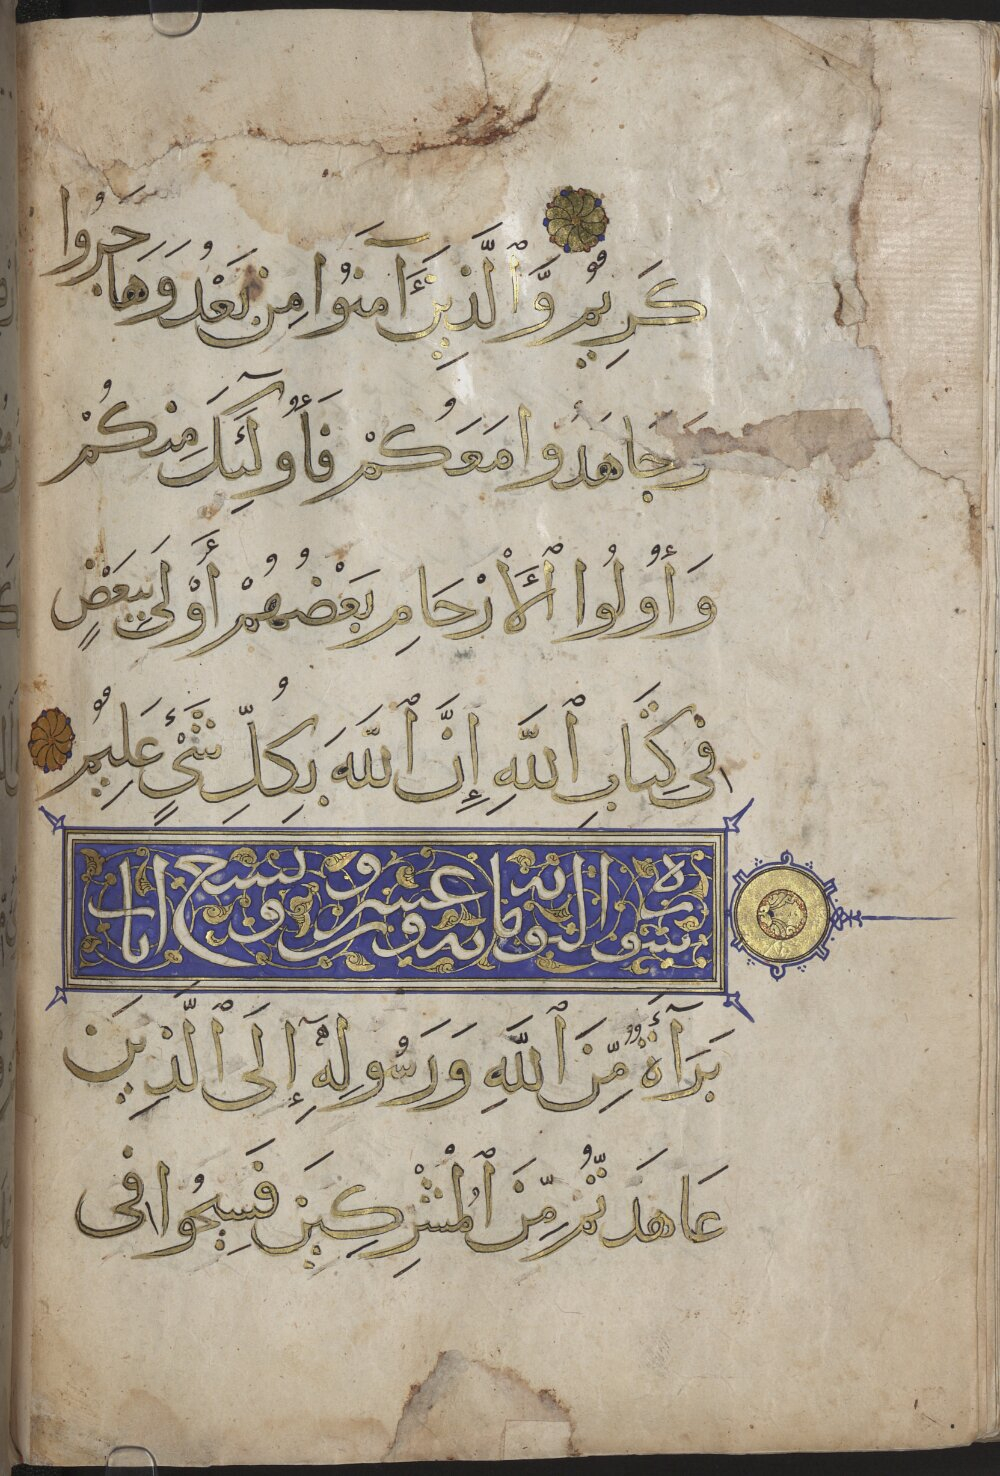 كَرِيمٌ وَّٱلَّذِينَ ءَآمَنُوا مِنۢ بَعْدُ وَهَاجَرُوا
وَجَاهَدُوا مَعَكُمْ فَأُولَٰٓئِكَ مِنكُمْ
وَأُولُوا ٱلْأَرْحَامِ بَعْضُهُمْ أَوْلَىٰ بِبَعْضٍ
فِى كِتَابِ ٱللَّهِ إِنَّ ٱللَّهَ بِكُلِّ شَىْءٍ عَلِيمٌ
سورة التوبة مائة وعشرون وتسع ايات
بَرَآءَةٌ مِّنَ ٱللَّهِ وَرَسُولِهِۦٓ إِلَى ٱلَّذِينَ
عَاهَدتُّمْ مِّنَ ٱلْمُشْرِكِينَ فَسِيحُوا فِى